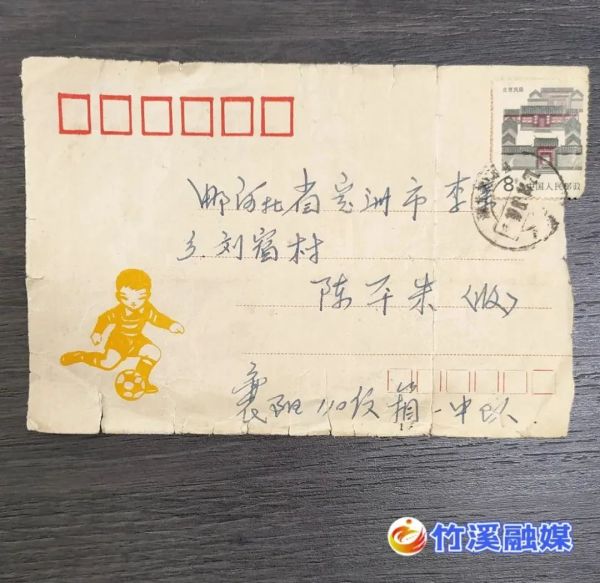 北京民居
8分 中国人民邮政
邮河北省定州市李亲
乡刘宿村
陈平朱〈收〉
襄阳110仅箱一中队
竹溪融媒